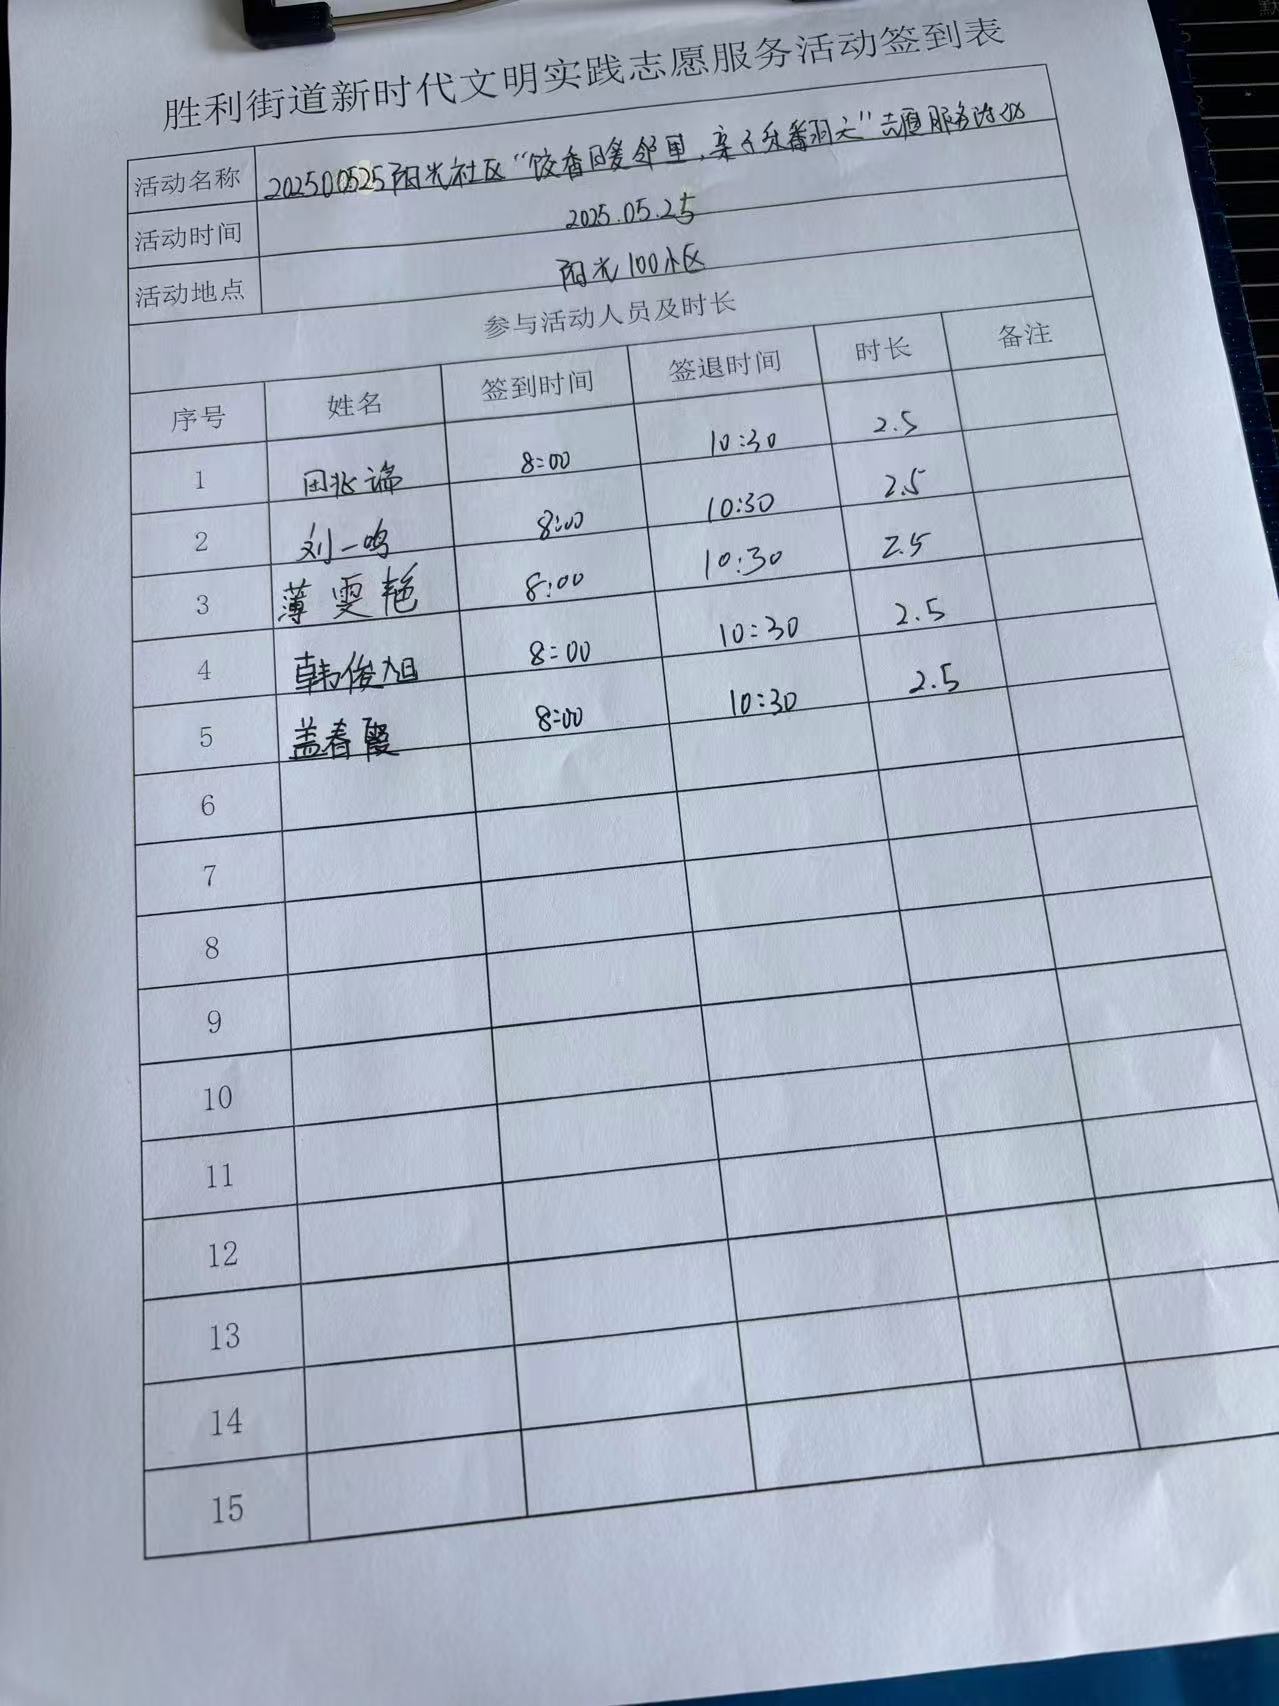 胜利街道新时代文明实践志愿服务活动签到表
活动名称 20250525阳光社区“饺香暖邻里，亲子乐翻天”志愿服务活动
活动时间 2025.05.25
活动地点 阳光100小区
参与活动人员及时长
序号 姓名 签到时间 签退时间 时长 备注
1 田兆谝 8:00 10:30 2.5
2 刘一鸣 8:00 10:30 2.5
3 薄雯艳 8:00 10:30 2.5
4 韩俊旭 8:00 10:30 2.5
5 盖春霞 8:00 10:30 2.5
6
7
8
9
10
11
12
13
14
15